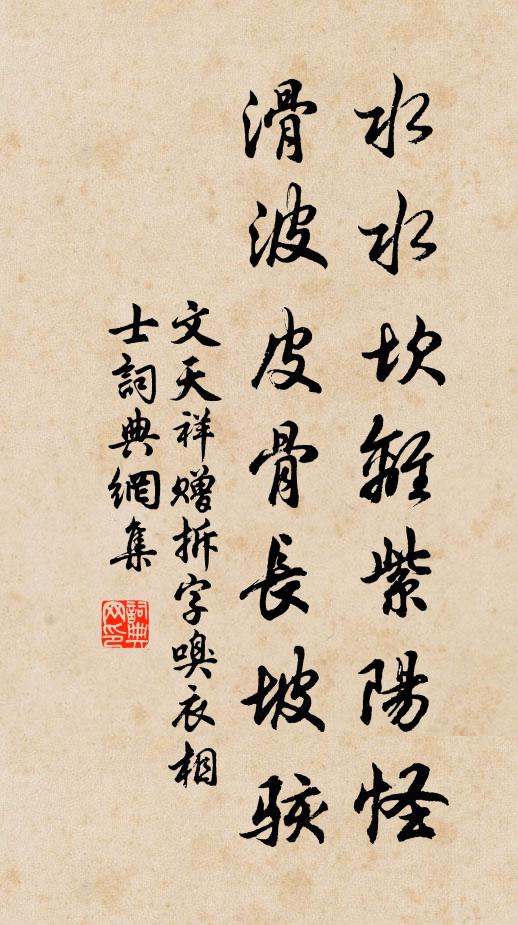 水水坎離紫陽怪
滑波皮骨長坡骇
文天祥贈拆字嗅衣相
士詞典網集
詞典網印